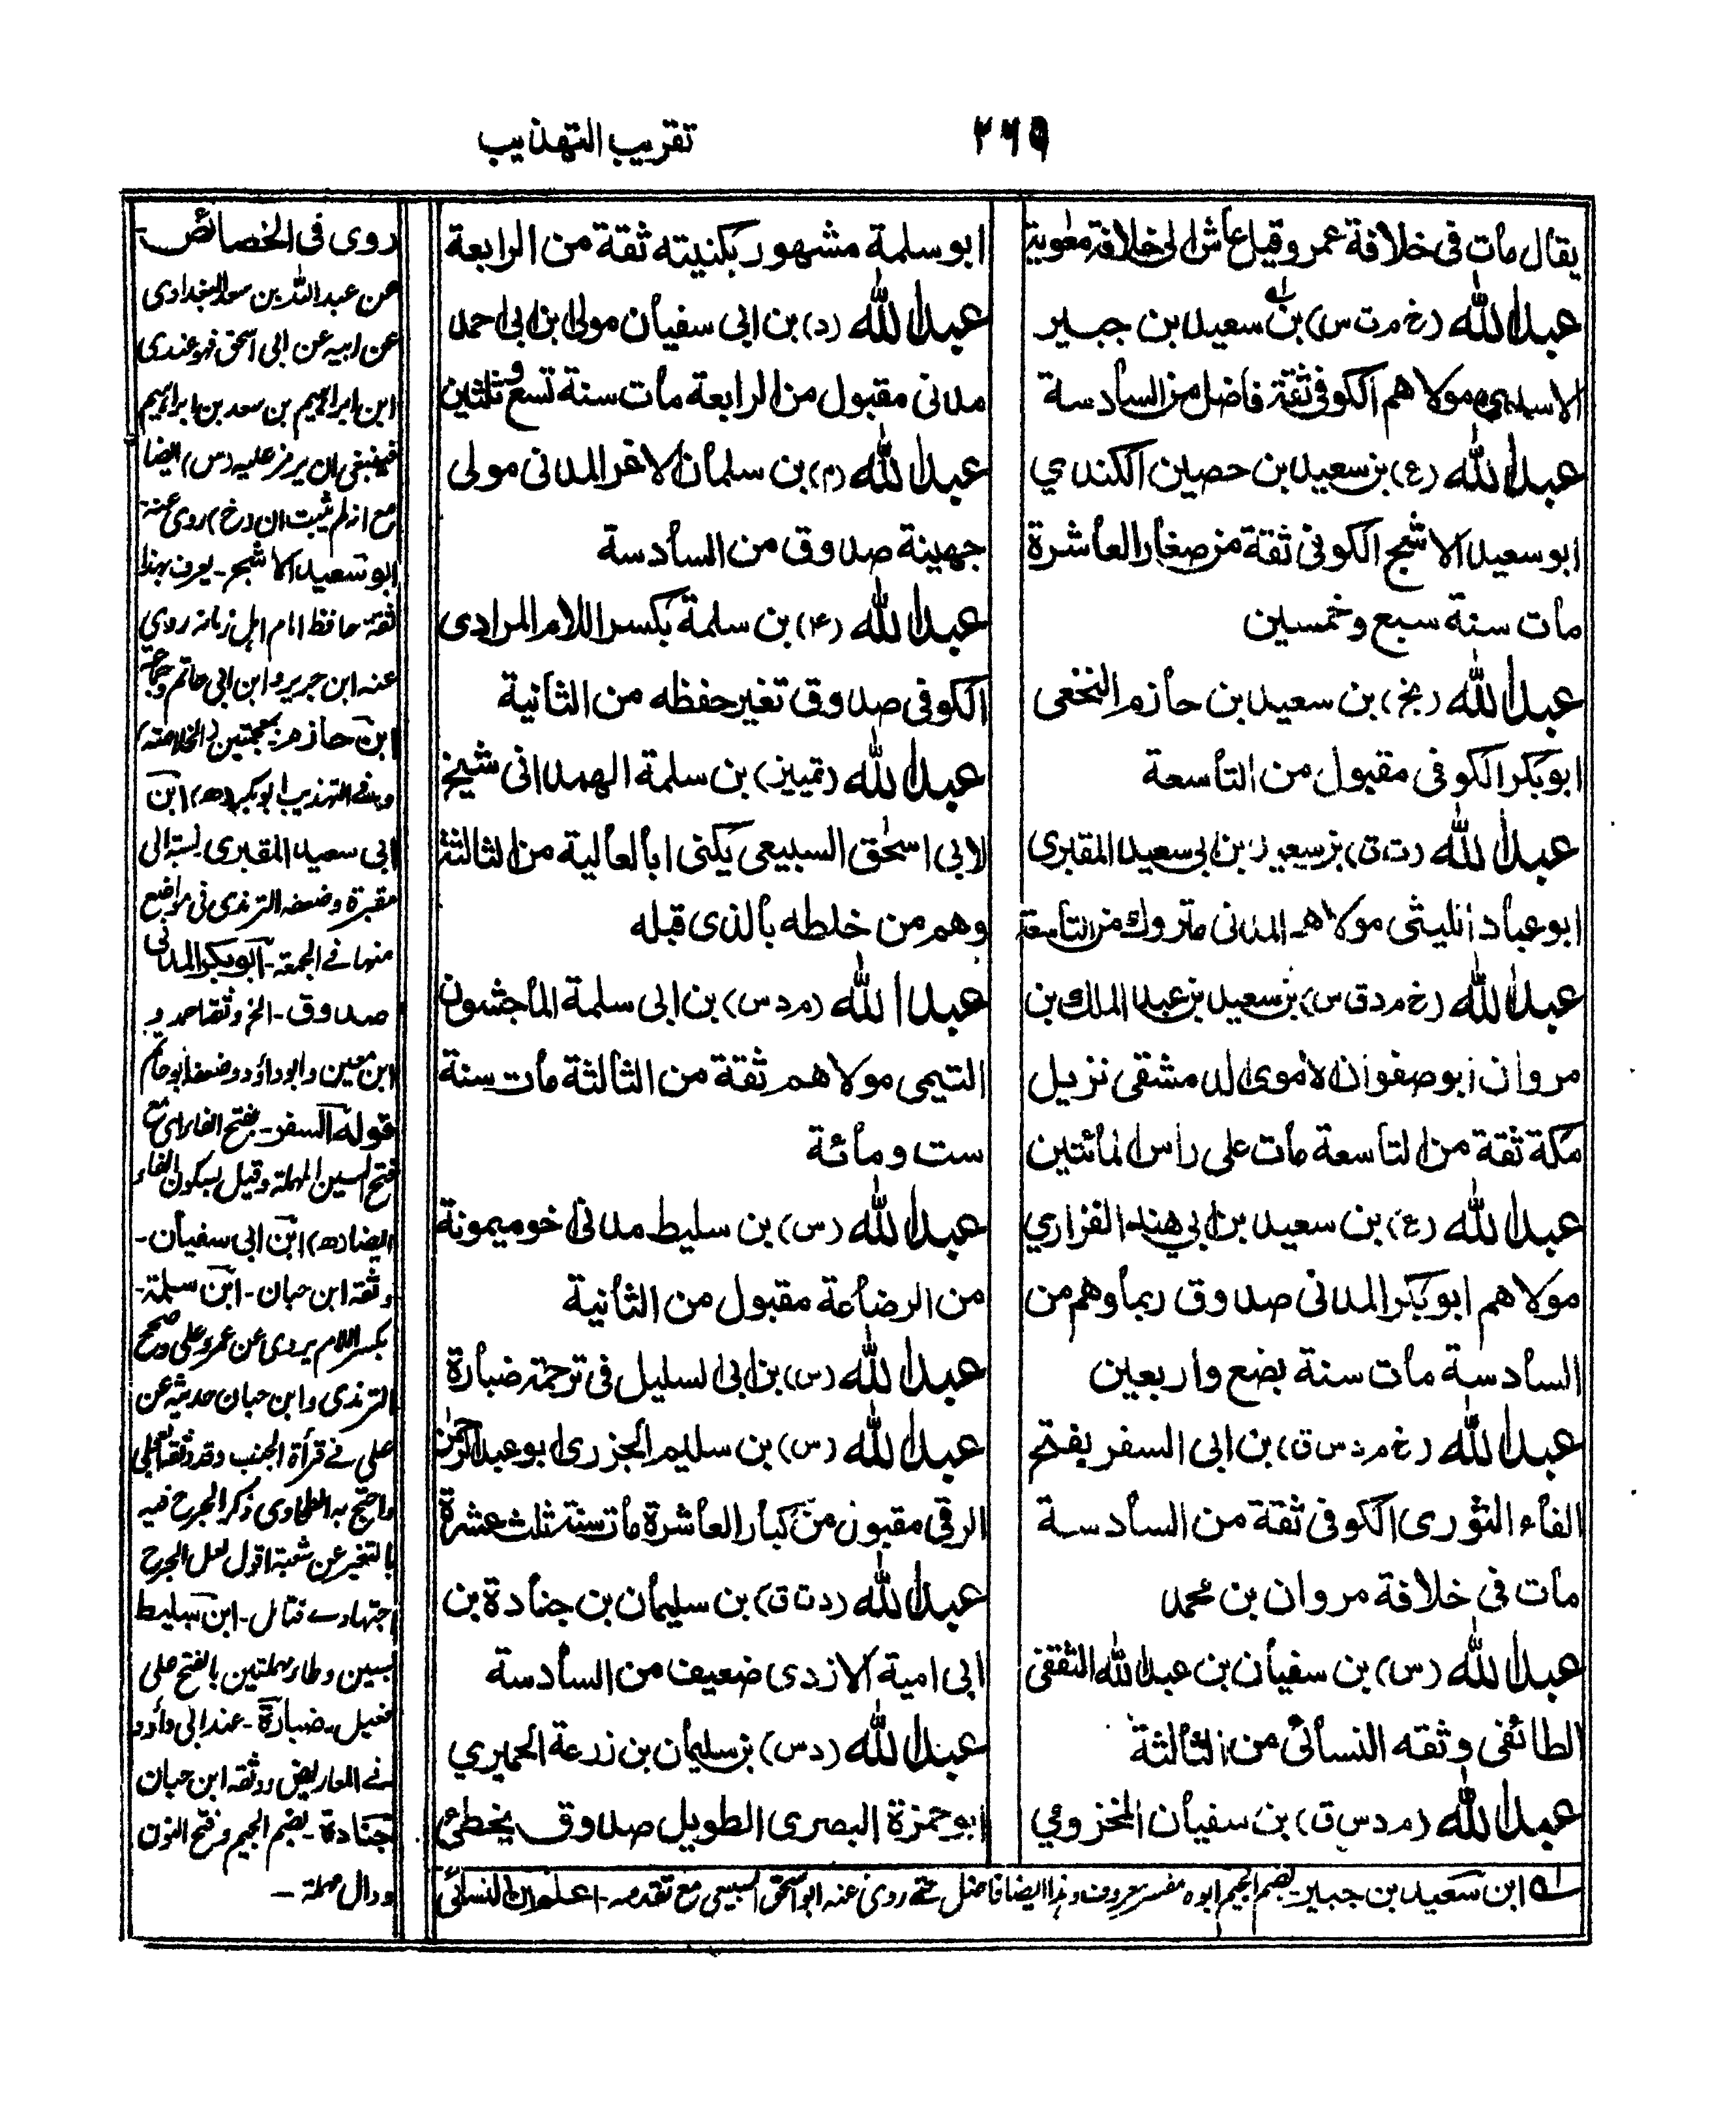 ٢٦٥
تقريب التهذيب
يقال مات فى خلافة عمر وقيل عاش الى خلافة معوية
عبد الله (خ م ت س) بن سعيد بن جبير
الاسدي مولاهم الكوفى ثقة فاضل من السادسة
عبد الله (ع) بن سعيد بن حصين الكندي
ابو سعيد الاشج الكوفى ثقة من صغار العاشرة
مات سنة سبع وخمسين
عبد الله (بخ) بن سعيد بن حازم النخعى
ابو بكر الكوفى مقبول من التاسعة
عبد الله (ت ق) بن سعيد بن ابى سعيد المقبرى
ابو عباد الليثى مولاهم المدنى متروك من التاسعة
عبد الله (خ م د ق س) بن سعيد بن عبد الملك بن
مروان ابو صفوان الاموى الدمشقى نزيل
مكة ثقة من التاسعة مات على راس المائتين
عبد الله (ع) بن سعيد بن ابى هند الفزاري
مولاهم ابو بكر المدنى صدوق ربما وهم من
السادسة مات سنة بضع واربعين
عبد الله (خ م د س ق) بن ابى السفر بفتح
الفاء الثورى الكوفى ثقة من السادسة
مات فى خلافة مروان بن محمد
عبد الله (س) بن سفيان بن عبد الله الثقفى
الطائفى وثقه النسائى من الثالثة
عبد الله (م د س ق) بن سفيان المخزومي
ابو سلمة مشهور بكنيته ثقة من الرابعة
عبد الله (د) بن ابى سفيان مولى ابن ابى احمد
مدنى مقبول من الرابعة مات سنة تسع وثلثين
عبد الله (م) بن سلمان الاغر المدنى مولى
جهينة صدوق من السادسة
عبد الله (۴) بن سلمة بكسر اللام المرادى
الكوفى صدوق تغير حفظه من الثانية
عبد الله (تمييز) بن سلمة الهمدانى شيخ
لابى اسحق السبيعى يكنى ابا العالية من الثالثة
وهم من خلطه بالذى قبله
عبد الله (م د س) بن ابى سلمة الماجشون
التيمى مولاهم ثقة من الثالثة مات سنة
ست ومائة
عبد الله (س) بن سليط مدنى اخو ميمونة
من الرضاعة مقبول من الثانية
عبد الله (س) بن ابى السليل فى ترجمة ضبارة
عبد الله (س) بن سليم الجزرى ابو عبد الرحمن
الرقى مقبول من كبار العاشرة مات سنة ثلث عشرة
عبد الله (د ت ق) بن سليمان بن جنادة بن
ابى امية الازدى ضعيف من السادسة
عبد الله (د س) بن سليمان بن زرعة الحميري
ابو حمزة البصرى الطويل صدوق يخطئ
روى فى الخصائص -
عن عبد الله بن سعد البغدادى
عن ابيه عن ابى اسحق فهو عندى
ابن ابراهيم بن سعد بن ابراهيم
فينبغى ان يرمز عليه (س) ايضا
مع انه لم يثبت ان (خ) روى عنه
ابو سعيد الاشج - يعرف بهذا
ثقة حافظ امام اهل زمانه روي
عنه ابن جرير وابن ابى حاتم وجماعة
ابن حازم بمعجمتين (الخلاصة)
وفى التهذيب ابو بكير (ه) ابن
ابى سعيد المقبرى نسبة الى
مقبرة وضعفه الترمذى فى مواضع
منها فى الجمعة - ابو بكر المدنى
صدوق - الخ وثقه احمد و
ابن معين وابو داؤد وضعفه ابو حاتم
قوله السفر - بفتح الفاء اى مع
فتح السين المهملة وقيل بسكون الفاء
ايضا (ه) ابن ابى سفيان -
وثقه ابن حبان - ابن سلمة -
بكسر اللام يروى عن عمر وعلى وصحح
الترمذى وابن حبان حديثه عن
على فى قرأة الجنب وقد وثقه العجلى
واحتج به الطحاوى ذكر الجرح فيه
بالتغير عن شعبة اقول لعل الجرح
اجتهادے فتامل - ابن سليط
بسين وطاء مهملتين بالفتح على
فعيل - ضبارة - عند ابى داؤد
فى المعاريض ووثقه ابن حبان
جنادة - بضم الجيم وفتح النون
ودال مهملة -
لـه ابن سعيد بن جبير - بضم الجيم ابوه مفسر معروف وهذا ايضا فاضل حتى روى عنه ابو اسحق السبيعى مع تقدمه - اعلم ان النسائى